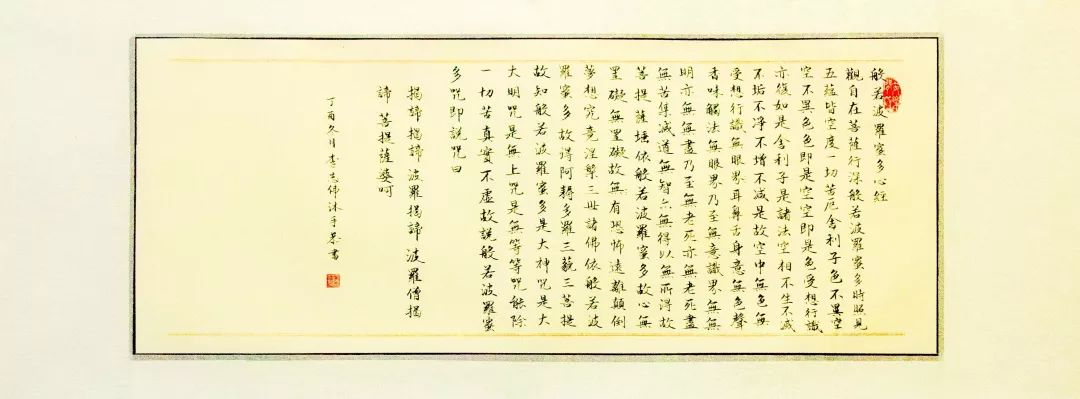 般若波羅蜜多心經
觀自在菩薩行深般若波羅蜜多時照見
五蘊皆空度一切苦厄舍利子色不異空
空不異色色即是空空即是色受想行識
亦復如是舍利子是諸法空相不生不滅
不垢不淨不增不減是故空中無色無
受想行識無眼界耳鼻舌身意無色聲
香味觸法無眼界乃至無意識界無無
明亦無無盡乃至無老死亦無老死盡
無苦集滅道無智亦無得以無所得故
菩提薩埵依般若波羅蜜多故心無
罣礙無罣礙故無有恐怖遠離顛倒
夢想究竟涅槃三世諸佛依般若波
羅蜜多故得阿耨多羅三藐三菩提
故知般若波羅蜜多是大神咒是大
大明咒是無上咒是無等等咒能除
一切苦真實不虛故說般若波羅蜜
多咒即說咒曰
揭諦揭諦 波羅揭諦 波羅僧揭
諦 菩提薩婆呵
丁酉 月李志 沐手恭書